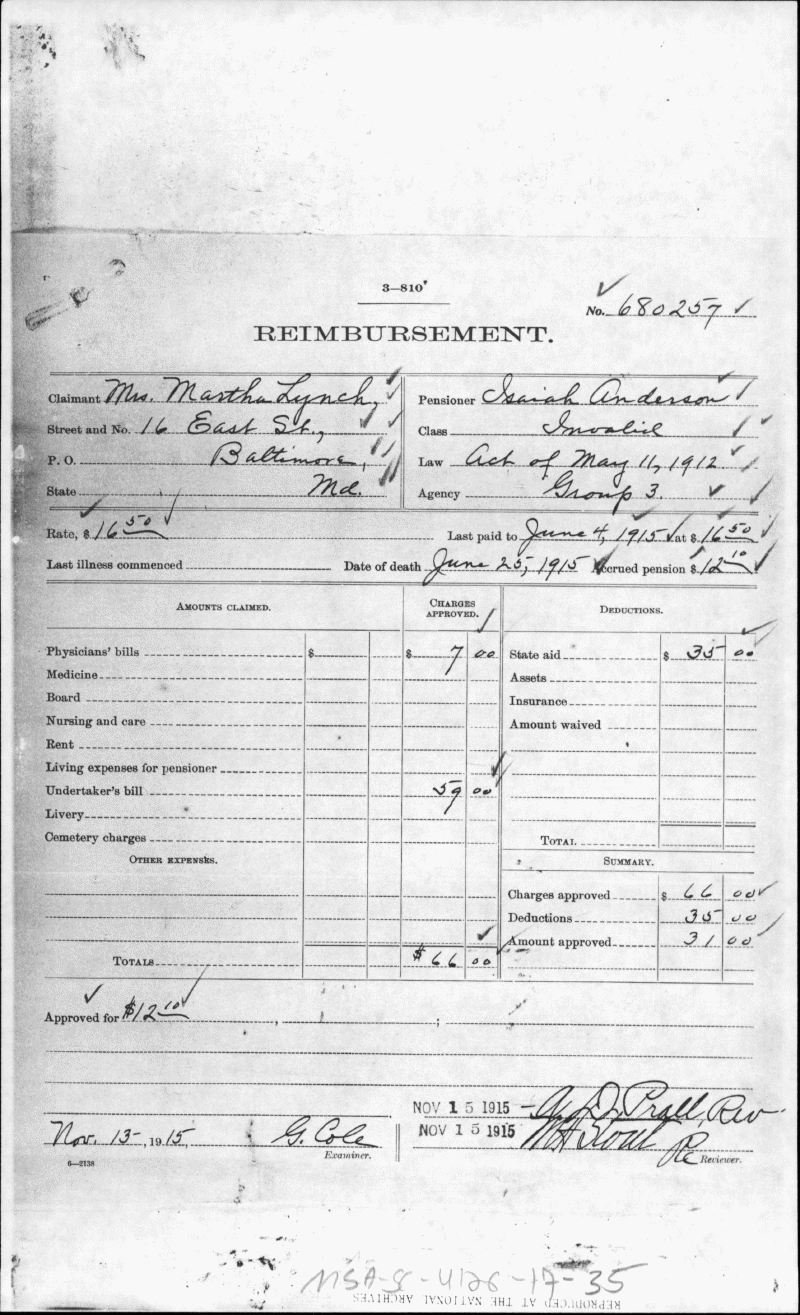 3—810
No. 680257
REIMBURSEMENT.
Claimant Mrs. Martha Lynch,
Street and No. 16 East St.,
P. O. Baltimore,
State Md.
Pensioner Isaiah Anderson
Class Invalid
Law Act of May 11, 1912
Agency Group 3.
Rate, $ 16 50 Last paid to June 4, 1915 at $ 16 50
Last illness commenced Date of death June 25, 1915 Accrued pension $ 12 10
AMOUNTS CLAIMED. CHARGES APPROVED. DEDUCTIONS.
Physicians' bills $ $ 7 00
Medicine
Board
Nursing and care
Rent
Living expenses for pensioner
Undertaker's bill 59 00
Livery
Cemetery charges
OTHER EXPENSES.
TOTALS $ 66 00
State aid $ 35 00
Assets
Insurance
Amount waived
TOTAL
SUMMARY.
Charges approved $ 66 00
Deductions 35 00
Amount approved 31 00
Approved for $12 10 , ;
NOV 15 1915 Prall, Rev
Nov. 13, 1915, G. Cole
Examiner.
NOV 15 1915
Reviewer.
6—2138
MSA-S-4126-17-35
REPRODUCED AT THE NATIONAL ARCHIVES